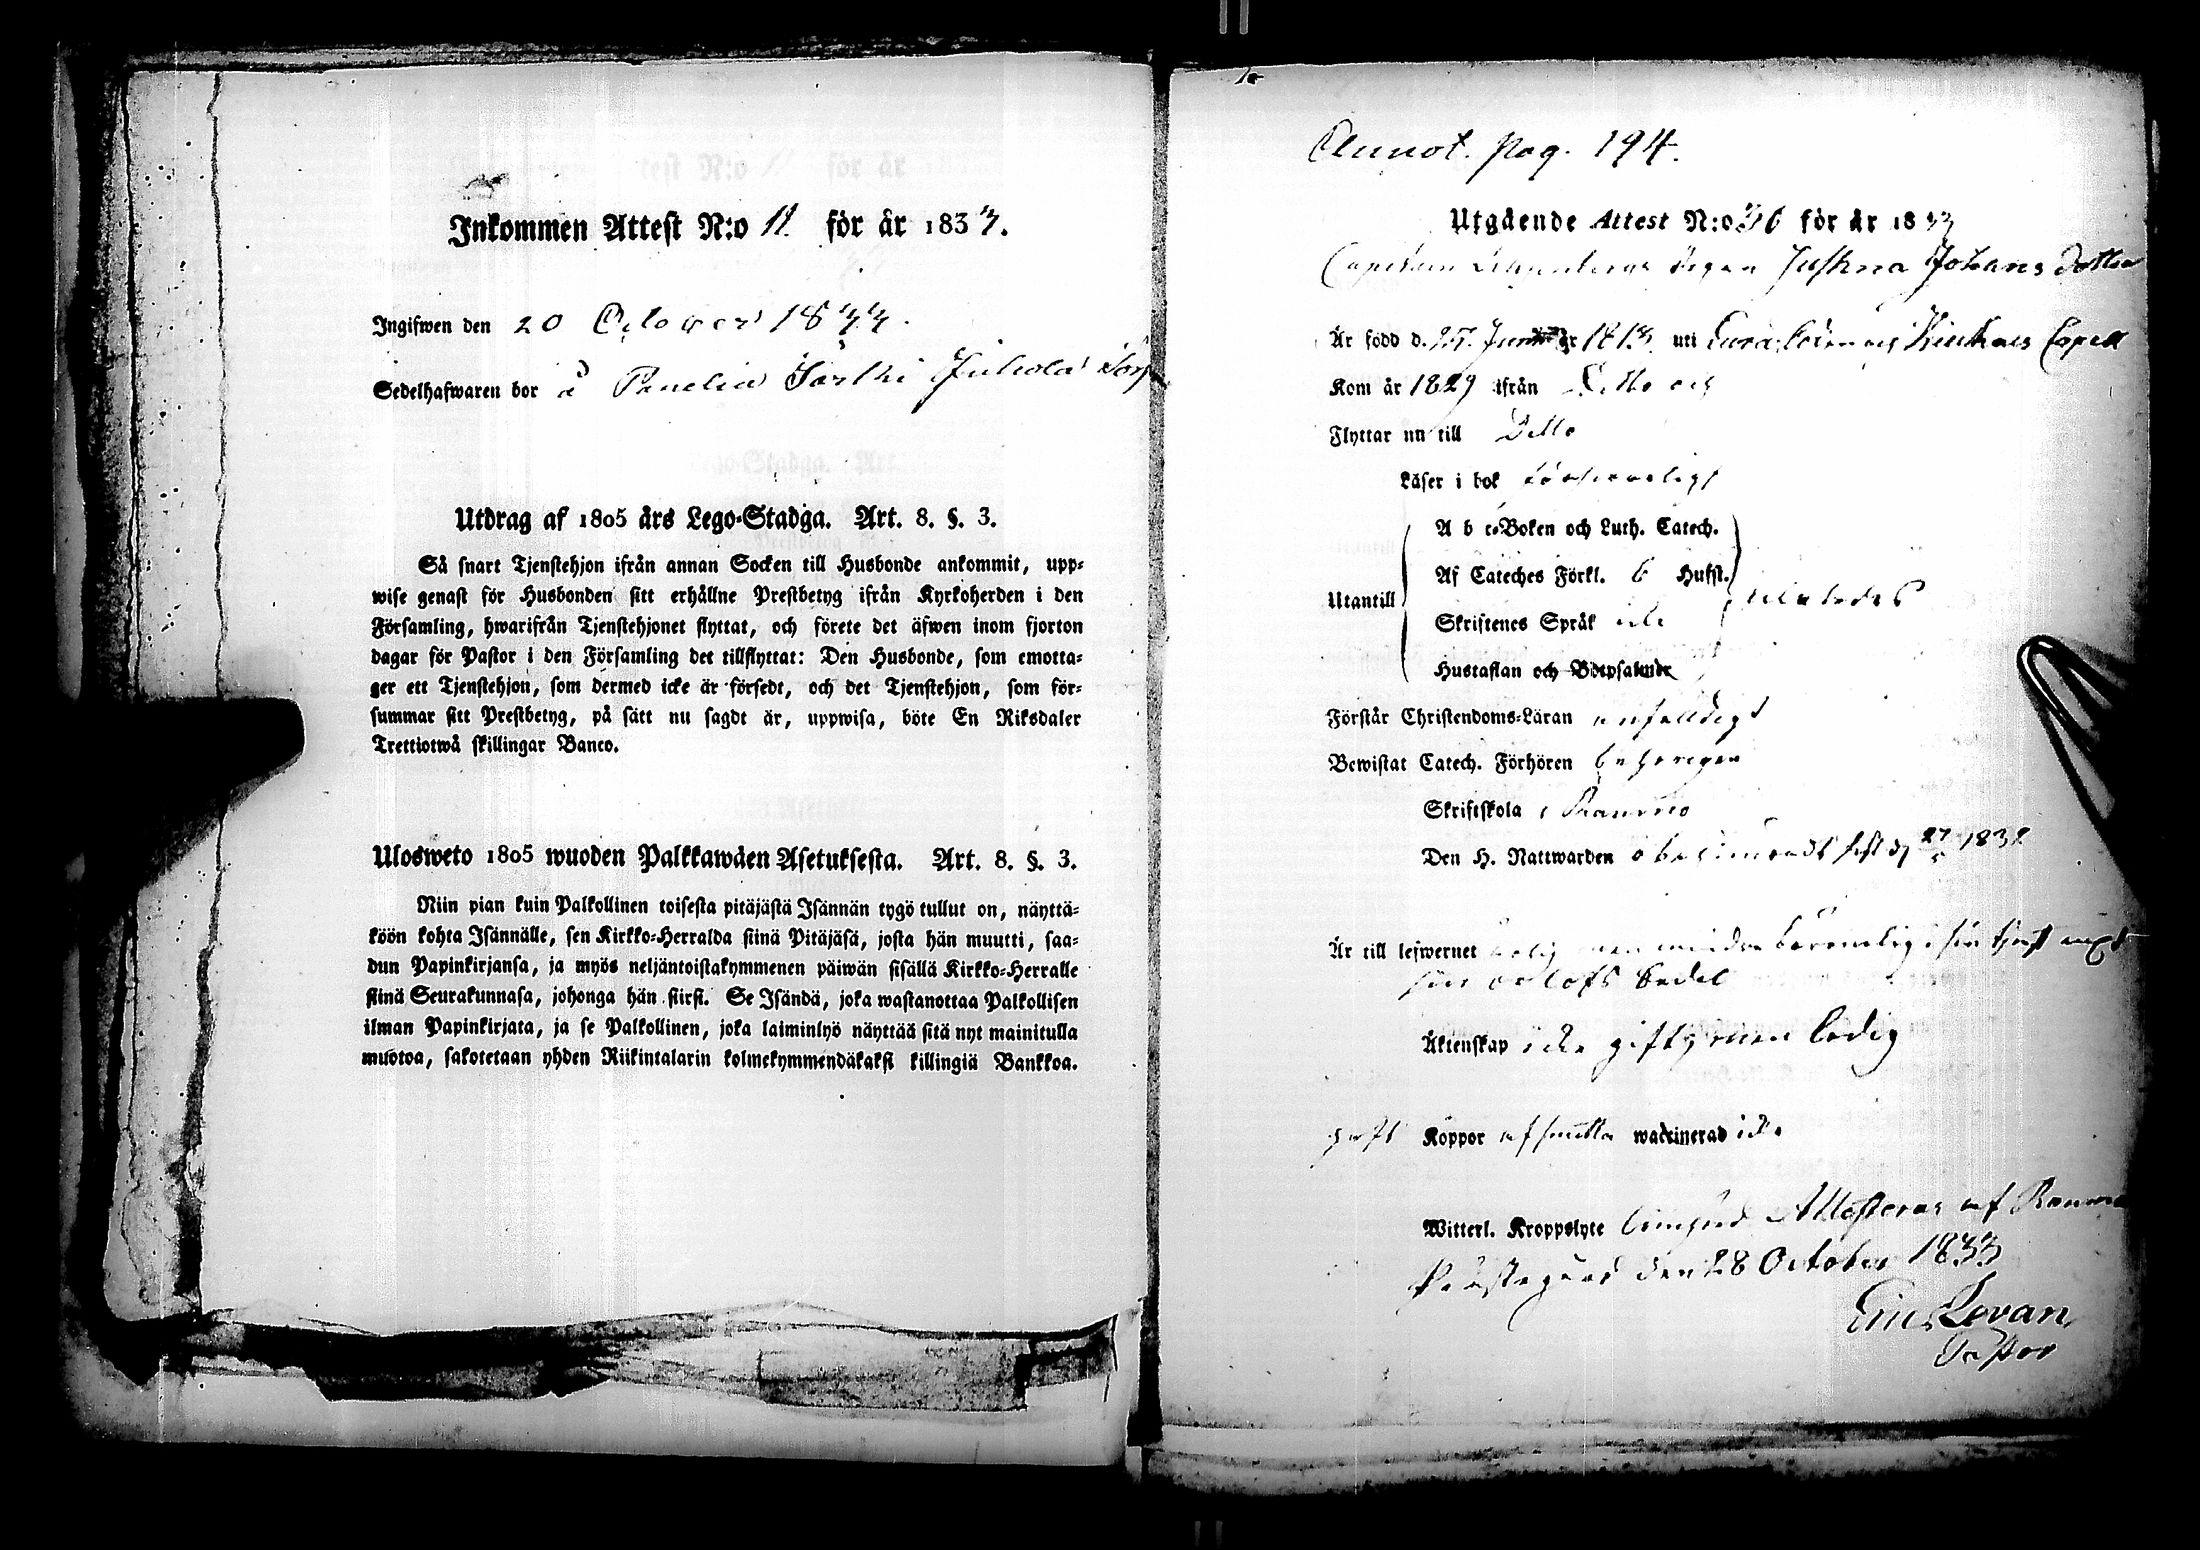 Inkommen Attest N:o 11. för år 1833.
Ingifwen den 20 October 1833.
Sedelhafwaren bor å Panelia Torp
Utdrag af 1805 års Lego-Stadga. Art. 8. §. 3.
Så snart Tjenstehjon ifrån annan Socken till Husbonde ankommit, upp-
wise genast för Husbonden sitt erhållne Prestbetyg ifrån Kyrkoherden i den
Församling, hwarifrån Tjenstehjonet flyttat, och förete det äfwen inom fjorton
dagar för Pastor i den Församling det tillflyttat: Den Husbonde, som emotta-
ger ett Tjenstehjon, som dermed icke är försedt, och det Tjenstehjon, som för-
summar sitt Prestbetyg, på sätt nu sagdt är, uppwisa, böte En Riksdaler
Trettiotwå skillingar Banco.
Ulosweto 1805 wuoden Palkkawäen Asetuksesta. Art. 8. §. 3.
Niin pian kuin Palkollinen toisesta pitäjästä Isännän tygö tullut on, näyttä-
köön kohta Isännälle, sen Kirkko-Herralda siinä Pitäjäsä, josta hän muutti, saa-
dun Papinkirjansa, ja myös neljäntoistakymmenen päiwän sisällä Kirkko-Herralle
siinä Seurakunnasa, johonga hän siirsi. Se Isändä, joka wastanottaa Palkollisen
ilman Papinkirjata, ja se Palkollinen, joka laiminlyö näyttää sitä nyt mainitulla
muotoa, sakotetaan yhden Riikintalarin kolmekymmendäkaksi killingiä Bankkoa.
Annot. pag. 194.
Utgående Attest N:o 36 för år 1833
pigan Justina Johans dotter
Är född d. 25. Juni år 1813 uti Eura Socken och Kiukais Capell
Kom år 1829 ifrån Ditto och
Flyttar nu till Ditto
Läser i bok försvarligt
A b c-Boken och Luth. Catech.
Af Cateches Förkl. 6 Hufst.
Utantill
Skriftenes Språk icke
Hustaflan och Botpsalmer
Förstår Christendoms-Läran enfaldigt
Bewistat Catech. Förhören behörigen
Skriftskola i Raumo
Den H. Nattwarden obehindradt sist d 27 1832
Är till lefwernet ärlig men mindre i sin tjenst
sin orlofs Sedel
Äktenskap icke gift, men ledig
haft Koppor wackinerad icke
Witterl. Kroppslyte Attesteras af Raumo
Prästegård den 28 October 1833
Eric Levan,
Pastor